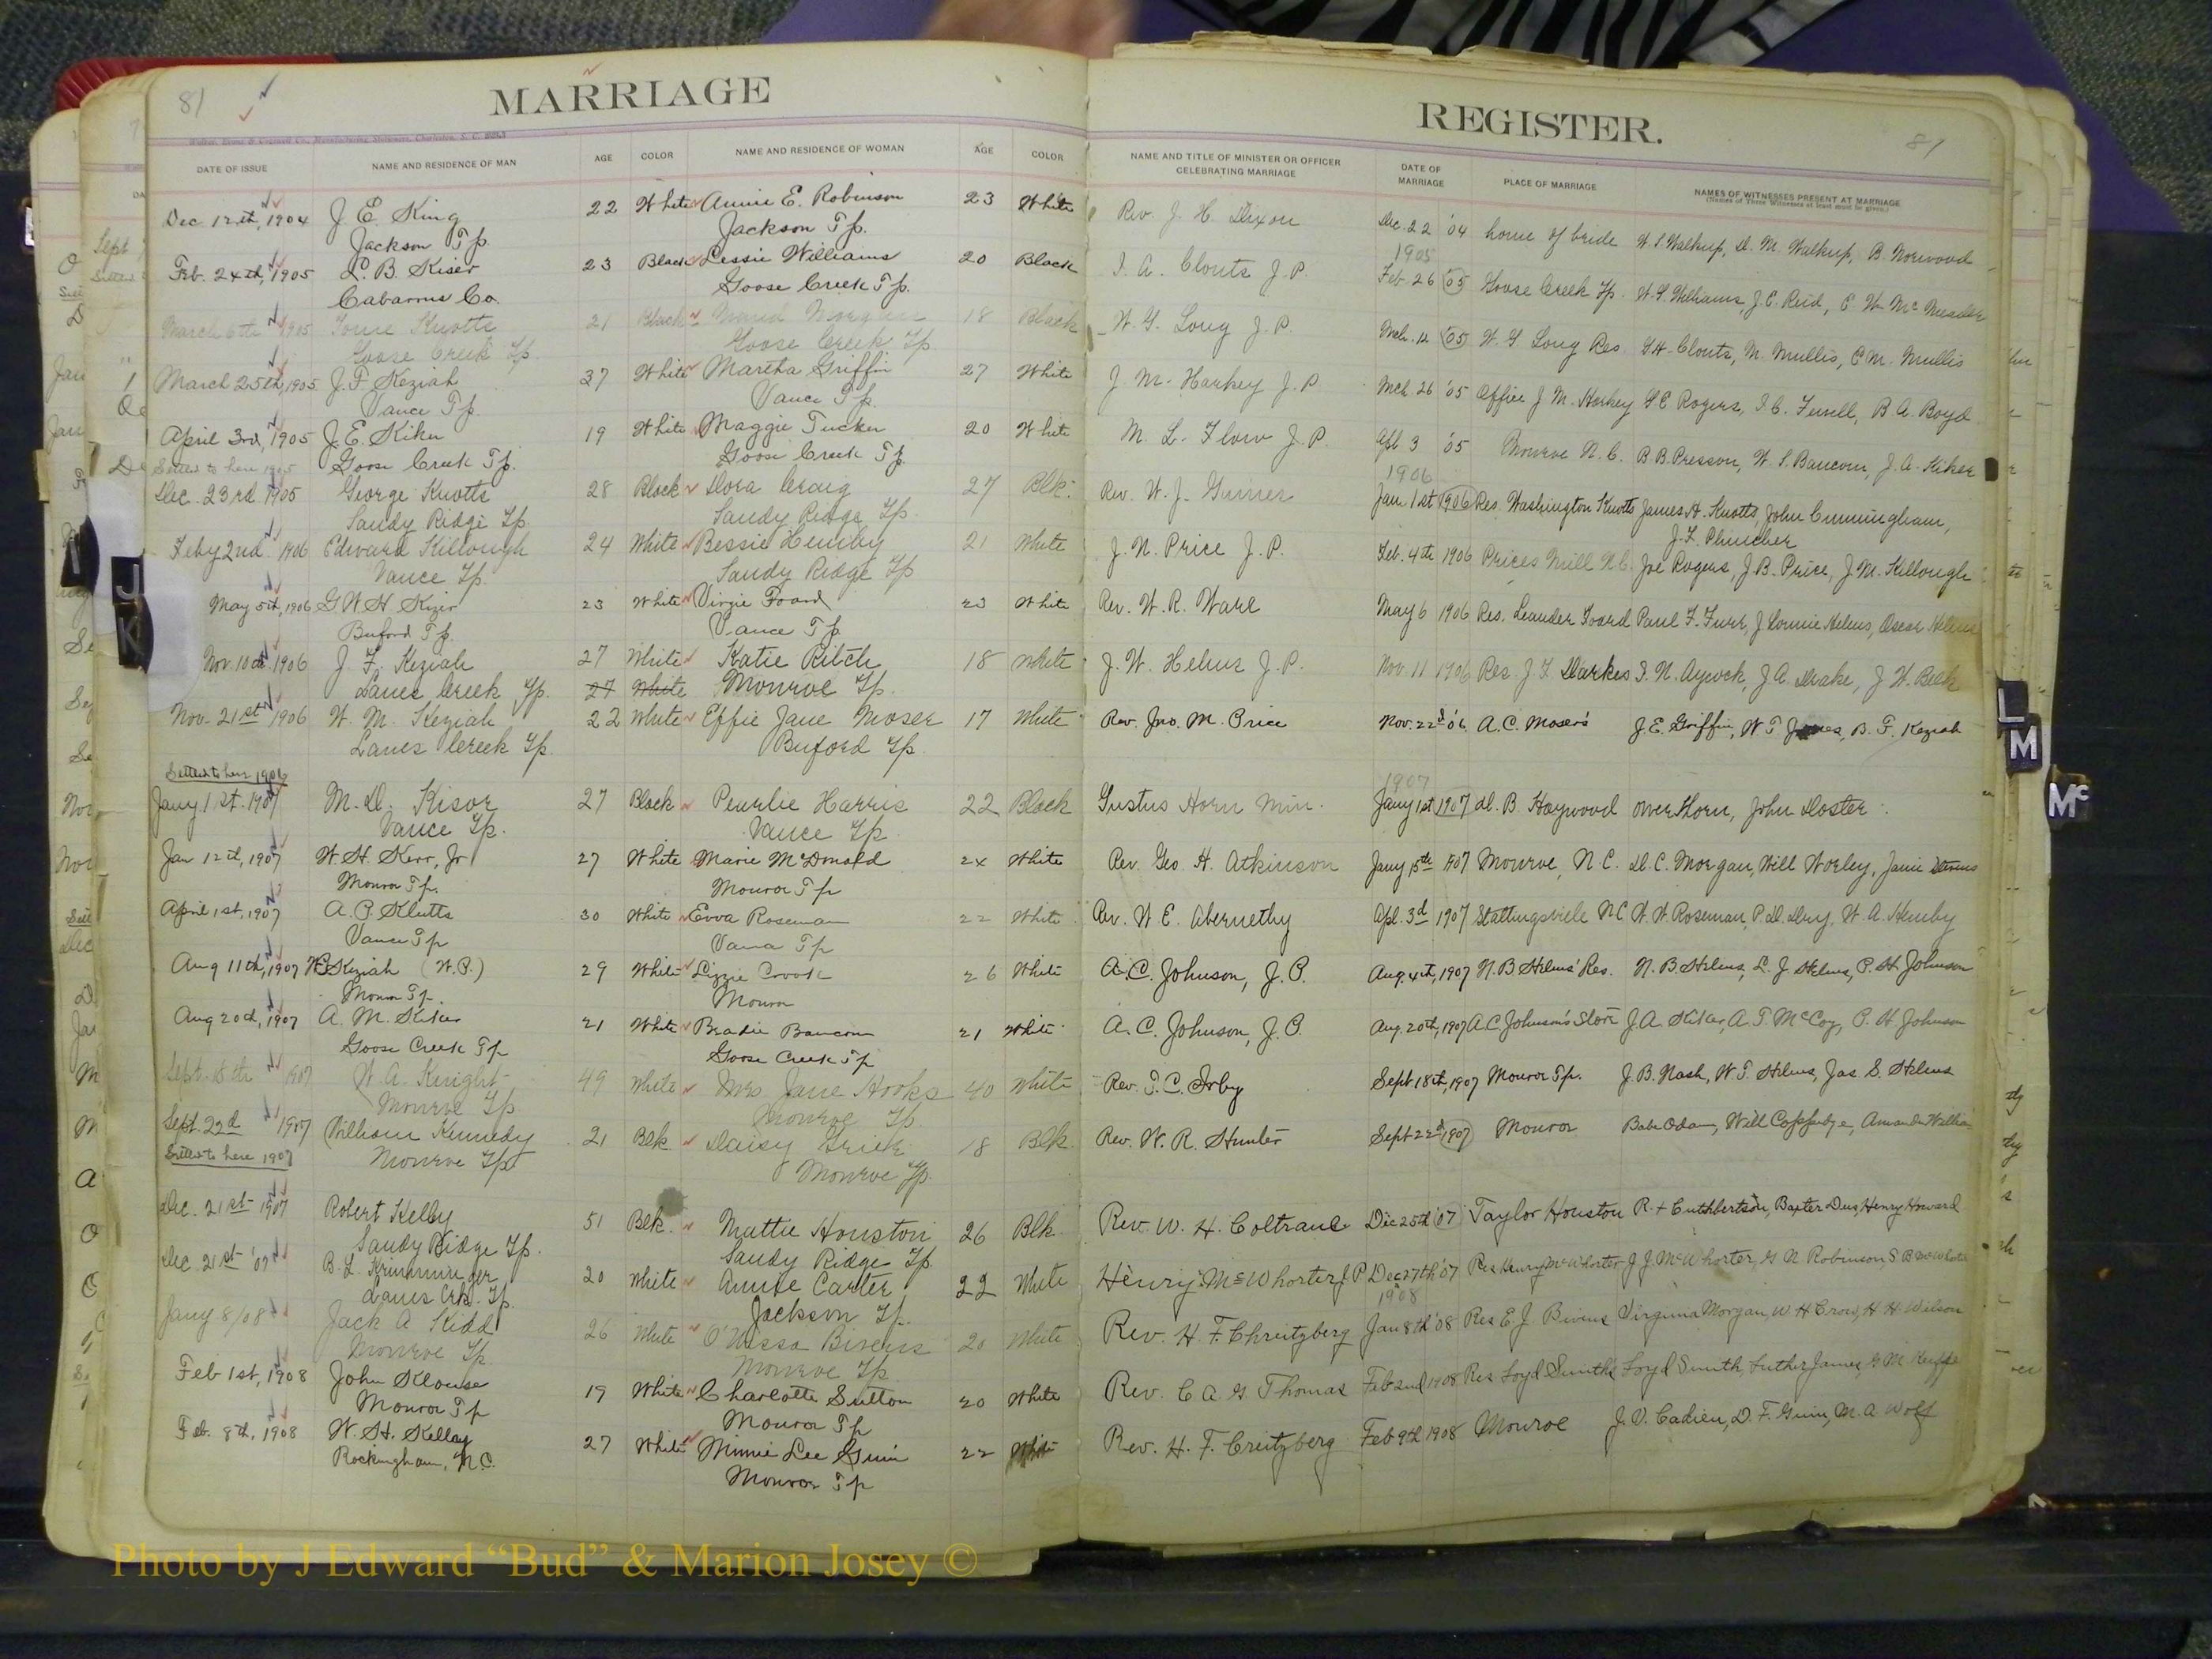 81
MARRIAGE
REGISTER.
81
DATE OF ISSUE NAME AND RESIDENCE OF MAN AGE COLOR NAME AND RESIDENCE OF WOMAN AGE COLOR NAME AND TITLE OF MINISTER OR OFFICER CELEBRATING MARRIAGE DATE OF MARRIAGE PLACE OF MARRIAGE NAMES OF WITNESSES PRESENT AT MARRIAGE
(Names of Three Witnesses at least must be given.)
Dec 12th, 1904 J. E. King 22 White Annie E. Robinson 23 White Rev. J. H. Dixon Dec. 22 '04 home of bride W. S. Walkup, D. M. Walkup, B. Norwood
Jackson Tp. Jackson Tp. 1905
Feb. 24th, 1905 L. B. Kiser 23 Black Lessie Williams 20 Black I. A. Clonts J. P. Feb. 26 05 Goose Creek Tp. Williams, J. C. Reid,
Cabarrus Co. Goose Creek Tp.
March 6th 1905 Knotts 21 Black Maud Morgan 18 Black W. G. Long J. P. Mch. 12 05 W. G Long Res. G. H. Clonts, M. Mullis, C. M. Mullis
Goose Creek Tp. Goose Creek Tp.
March 25th, 1905 J. F. Keziah 37 White Martha Griffin 27 White J. M. Harkey J. P. Mch 26 '05 Office J. M. Harkey G C Rogers, B. A. Boyd
Vance Tp. Vance Tp.
April 3rd, 1905 J. E. Kiker 19 White Maggie Tucker 20 White M. L. Flow J. P. Apl 3 '05 Monroe N. C. B. B. Presson, W. S. Baucom, J. A. Kiker
Settled to here 1905 Goose Creek Tp. Goose Creek Tp. 1906
Dec. 23rd 1905 George Knotts 28 Black Dora Craig 27 Blk. Rev. W. J. Jan 1st 1906 Res. Washington Knotts James H. Knotts, John Cunningham,
Sandy Ridge Tp. Sandy Ridge Tp. J. F. Plumcher
Feby 2nd 1906 Edward Killough 24 White Bessie Hemby 21 White J. N. Price J. P. Feb. 4th 1906 Prices Mill N. C. Joe Rogers, J. B. Price, J. M. Killough
Vance Tp. Sandy Ridge Tp
May 5th, 1906 G W H Kizir 23 White Virgie Foard 23 White Rev. W. R. Ware May 6 1906 Res. Leander Foard Paul F. Furr, J Lonnie Helms, Oscar Helms
Buford Tp. Vance Tp
Nov. 10th 1906 J. F. Keziah 27 White Katie Ritch 18 White J. W. Helms J. P. Nov. 11 1906 Res. J. F. Darkes S. N. Aycock, J A. Drake, J W. Belk
Lanes Creek Tp. 27 White Monroe Tp.
Nov. 21st 1906 W. M. Keziah 22 White Effie Jane Moser 17 White Rev. Jno. M. Price Nov. 22d '06 A. C. Moser's J. E. Griffin, W T, B. F. Keziah
Lanes Creek Tp. Buford Tp.
Settled to here 1906 1907
Jany 1st. 1907 M. D. Kisor 27 Black Pearlie Harris 22 Black Gustus Horn Min. Jany 1st 1907 D. B Haywood Horn, John Doster
Vance Tp. Vance Tp
Jan 12th, 1907 W. H. Kerr, Jr 27 White Marie McDonald 24 White Rev. Geo. H. Atkinson Jany 15th 1907 Monroe, N. C. D. C. Morgan, Will Worley, Janie
Monroe Tp. Monroe Tp
April 1st, 1907 A. P. Klutts 30 White Evva Roseman 22 White Rev. W. E. Abernethy Apl. 3d 1907 Stallingsville N C W. W Roseman, P. D. Dry, W. A. Hemby
Vance Tp Vance Tp
Aug 11th, 1907 W P Keziah (W. P.) 29 White Lizzie Crook 26 White A. C. Johnson, J. P. Aug. 4th, 1907 N. B Helms' Res. N. B. Helms, L. J Helms, P. H Johnson
Monroe Tp. Monroe
Aug 20th, 1907 A. M. Kiker 21 White Bradie Baucom 21 White A. C. Johnson, J. P. Aug. 20th, 1907 A. C. Johnson's Store J. A. Kiker, A. T. McCoy, P. H Johnson
Goose Creek Tp Goose Creek Tp
Sept. 18th 1907 W. A. Knight 49 White Mrs Jane Hooks 40 White Rev. T. C. Irby Sept. 18th, 1907 Monroe Tp. J. B. Nash, W. T. Helms, Jas. S. Helms
Monroe Tp Monroe Tp
Sept. 22d 1907 William Kennedy 21 Blk Daisy Grier 18 Blk Rev. W. R. Hunter Sept 22d 1907 Monroe Babe Odom, Will Coppedge, Amanda
Settled to here 1907 Monroe Tp Monroe Tp.
Dec. 21st 1907 Robert Kelly 51 Blk. Mattie Houston 26 Blk Rev. W. H. Coltrane Dec 25th '07 Taylor Houston R. + Cuthbertson, Baxter, Henry Howard
Sandy Ridge Tp. Sandy Ridge Tp.
Dec. 21st '07 B. L. Krimminger 20 White Annie Carter 22 White Henry McWhorter J P Dec 27th '07 Res Henry McWhorter J J McWhorter, G N Robinson, S B McWhorter
Lanes Crk. Tp. Jackson Tp. 1908
Jany 8/08 Jack A Kidd 26 White O'Nessa Bivens 20 White Rev. H. F. Chreitzberg Jan 8th '08 Res E. J. Bivins Virginia Morgan, W H Crow, H. H. Wilson
Monroe Tp. Monroe Tp
Feb 1st, 1908 John Klouse 19 White Charlotte Sutton 20 White Rev. C A G Thomas Feb 2nd 1908 Res Loyd Smiths Loyd Smith, Luther James,
Monroe Tp Monroe Tp
Feb. 8th, 1908 W. H. Kelley 27 White Minnie Lee Guin 22 White Rev. H. F. Creitzberg Feb 9th 1908 Monroe J. V. Cadieu, D. F. Guin, M. A Wolf
Rockingham, N. C. Monroe Tp
J
K
L
M
Mc
Photo by J Edward “Bud” & Marion Josey ©